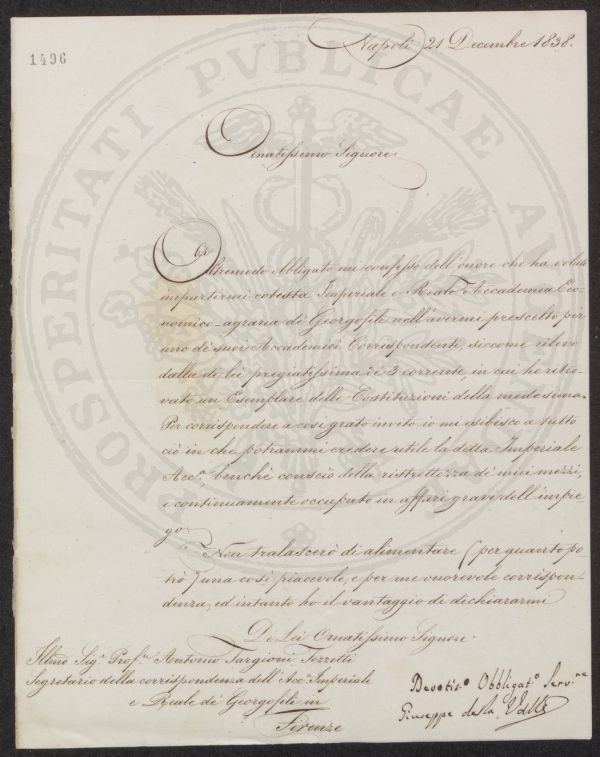 1496
Napoli 21 Decembre 1838.
Ornatissimo Signore
Oltremodo obbligato mi confesso dell'onore che ha voluto
impartirmi cotesta Imperiale e Reale Accademia Eco-
nomico-agraria dè Georgofili nell'avermi prescelto per
uno dè suoi Accademici Corrispondenti, siccome rilevo
dalla di lei pregiatissima de' 3 corrente, in cui ho ritro-
vato un Esemplare delle Costituzioni della medesima.
Per corrispondere a così grato invito io mi esibisco a tutto
ciò in che potrammi credere utile la detta Imperiale
Acc.ª, benchè conscio della ristrettezza dè miei mezzi,
e continuamente occupato in affari gravi dell'impie-
go.
Non tralascerò di alimentare (per quanto po-
trò) una così piacevole, e per me onorevole corrispon-
denza, ed intanto ho il vantaggio di dichiararmi
Di Lei Ornatissimo Signore
Illmo Sig.r Prof.re Antonio Targioni Tozzetti
Segretario della corrispondenza dell'Acc.ª Imperiale
e Reale dè Georgofili in
Firenze
Devotis.o Obbligat.o Serv.re
Giuseppe della Valle
PROSPERITATI PVBLICAE AVGENDAE